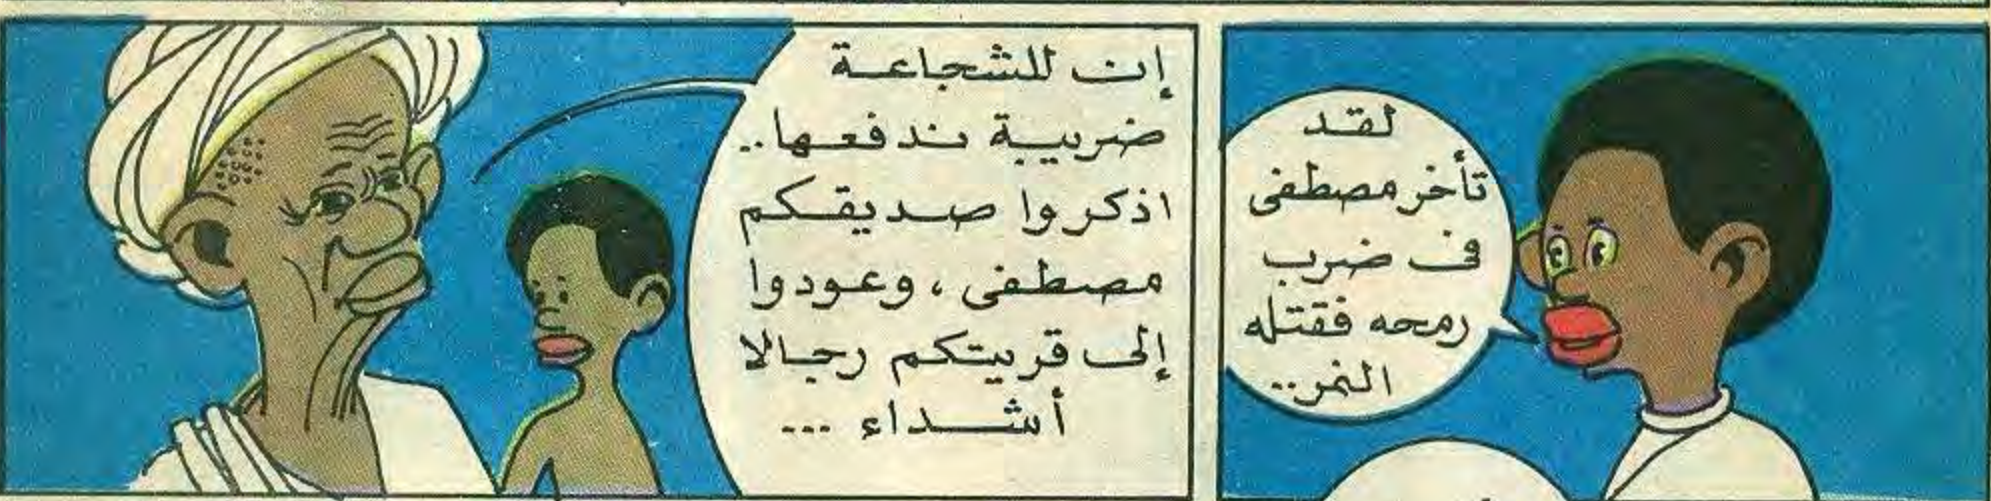 لقد
تأخر مصطفى
فى ضرب
رمحه فقتله
النمر..
إن للشجاعة
ضريبة ندفعها..
اذكروا صديقكم
مصطفى ، وعودوا
إلى قريتكم رجالا
أشداء ...